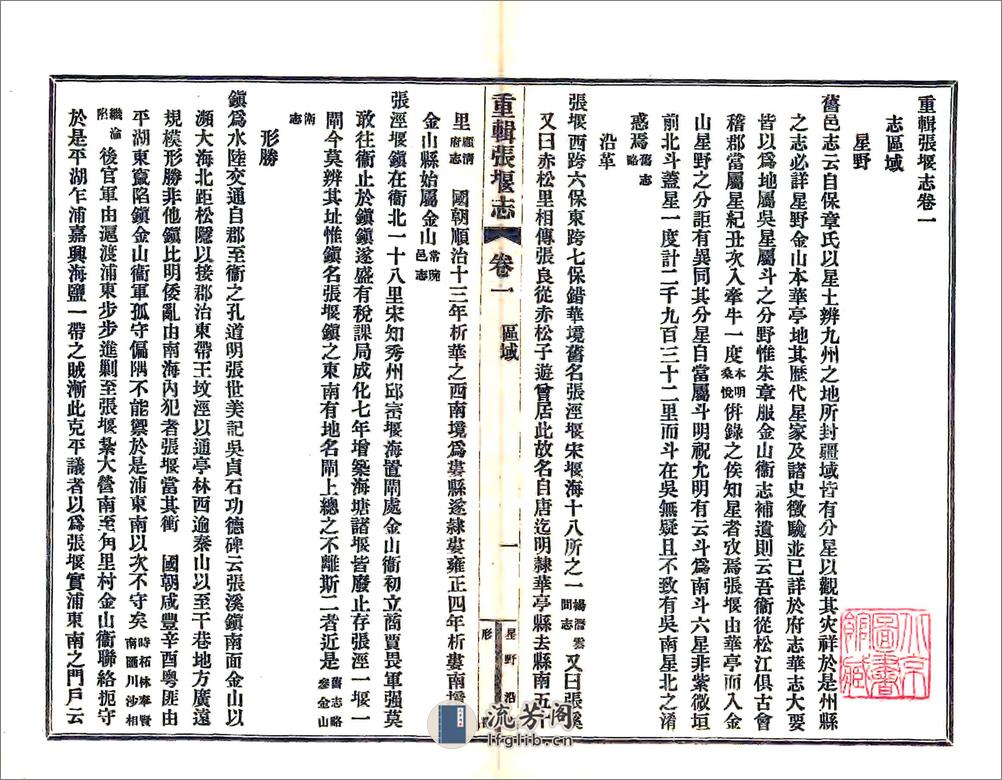 重輯張堰志卷一
志區域
星野
舊邑志云自保章氏以星土辨九州之地所封疆域皆有分星以觀其災祥於是州縣
之志必詳星野金山本華亭地其歷代星家及諸史徵驗並已詳於府志華志大要
皆以為地屬吳星屬斗之分野惟朱章服金山衞志補遺則云吾衞從松江俱古會
稽郡當屬星紀丑次入牽牛一度本明桑悅併錄之俟知星者攷焉張堰由華亭而入金
山星野之分詎有異同其分星自當屬斗明祝允明有云斗為南斗六星非紫微垣
前北斗蓋星一度計二千九百三十二里而斗在吳無疑且不致有吳南星北之淆
惑焉舊志略
沿革
張堰西跨六保東跨七保錯華境舊名張涇堰宋堰海十八所之一楊潛雲間志又曰張溪
又曰赤松里相傳張良從赤松子遊曾居此故名自唐迄明隸華亭縣去縣南五十
重輯張堰志 卷一 區域 一 星野 沿革 形勝
里顧清府志 國朝順治十三年析華之西南境為婁縣遂隸婁雍正四年析婁南境
金山縣始屬金山常琬邑志
張涇堰鎮在衞北一十八里宋知秀州邱崈堰海置閘處金山衞初立商賈畏軍强莫
敢往衞止於鎮鎮遂盛有稅課局成化七年增築海塘諸堰皆廢止存張涇一堰一
閘今莫辨其址惟鎮名張堰鎮之東南有地名閘上總之不離斯二者近是舊志略參金山
衞志
形勝
鎮為水陸交通自郡至衞之孔道明張世美記吳貞石功德碑云張溪鎮南面金山以
瀕大海北距松隱以接郡治東帶王坟涇以通亭林西逾秦山以至干巷地方廣遠
規模形勝非他鎮比明倭亂由南海內犯者張堰當其衝 國朝咸豐辛酉粵匪由
平湖東竄陷鎮金山衞軍孤守偏隅不能禦於是浦東南以次不守矣時柘林奉賢南匯川沙相
繼淪陷 後官軍由滬渡浦東步步進剿至張堰紮大營南至角里村金山衞聯絡扼守
於是平湖乍浦嘉興海鹽一帶之賊漸此克平議者以為張堰實浦東南之門戶云
北京圖書館藏
流芳阁
lfglib.cn